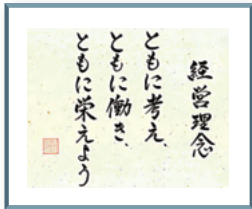 経営理念
ともに考え、
ともに働き、
ともに栄えよう